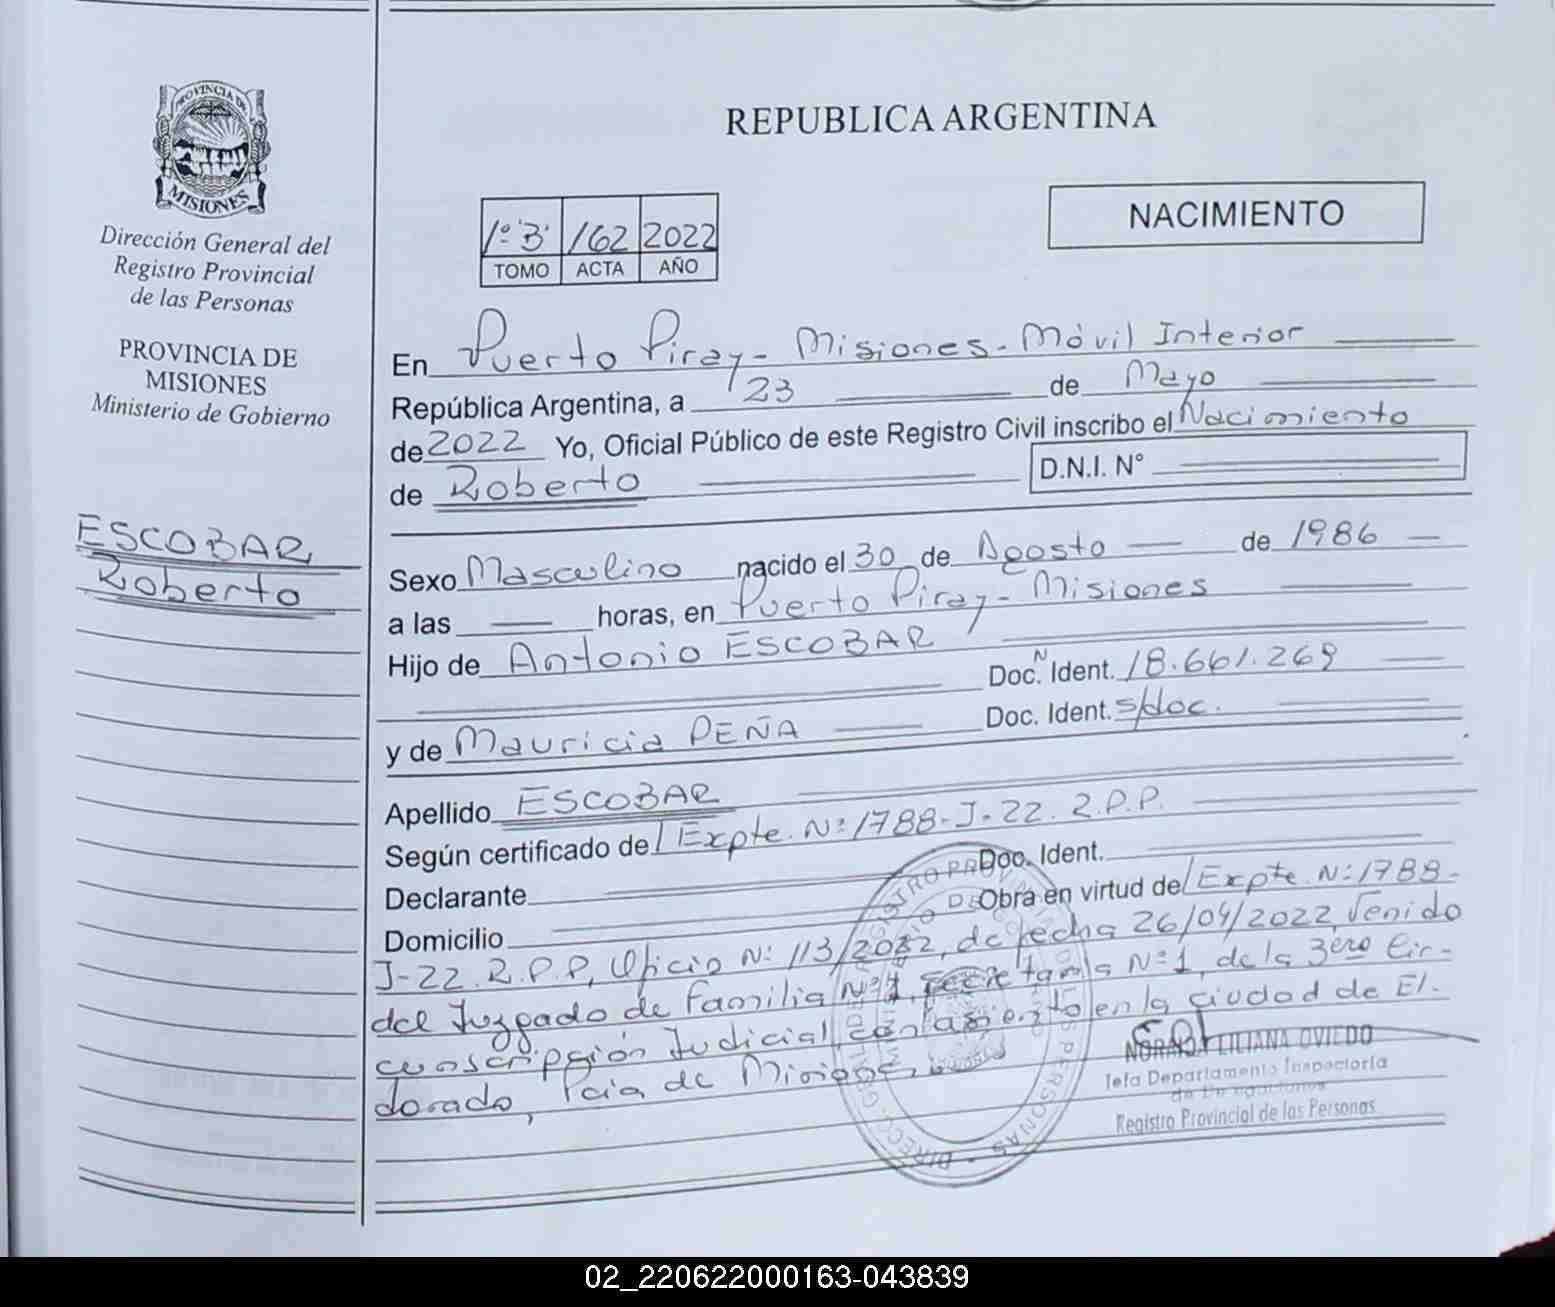 PROVINCIA DE
MISIONES
Dirección General del
Registro Provincial
de las Personas
PROVINCIA DE
MISIONES
Ministerio de Gobierno
ESCOBAR
Roberto
REPUBLICA ARGENTINA
NACIMIENTO
1º "B" 162 2022
TOMO ACTA AÑO
En Puerto Piray - Misiones - Móvil Interior
República Argentina, a 23 de Mayo
de 2022 Yo, Oficial Público de este Registro Civil inscribo el Nacimiento
de Roberto D.N.I. N°
Sexo Masculino nacido el 30 de Agosto de 1986
a las horas, en Puerto Piray - Misiones
Hijo de Antonio ESCOBAR
Doc. N Ident. 18.661.269
y de Mauricia PEÑA Doc. Ident. s/doc.
Apellido ESCOBAR
Según certificado de Expte. Nº 1788-J-22. R.P.P.
Declarante Doc. Ident.
Domicilio Obra en virtud de Expte. Nº 1788-
J-22. R.P.P, Oficio Nº 113/2022, de fecha 26/04/2022, Venido
del Juzgado de Familia Nº 1, Secretaría Nº 1, de la 3era Cir-
cunscripción Judicial con asiento en la ciudad de El-
dorado, Pcia de Misiones
NORMA LILIANA OVIEDO
Jefa Departamento Inspectoria
Registro Provincial de las Personas
02_220622000163-043839